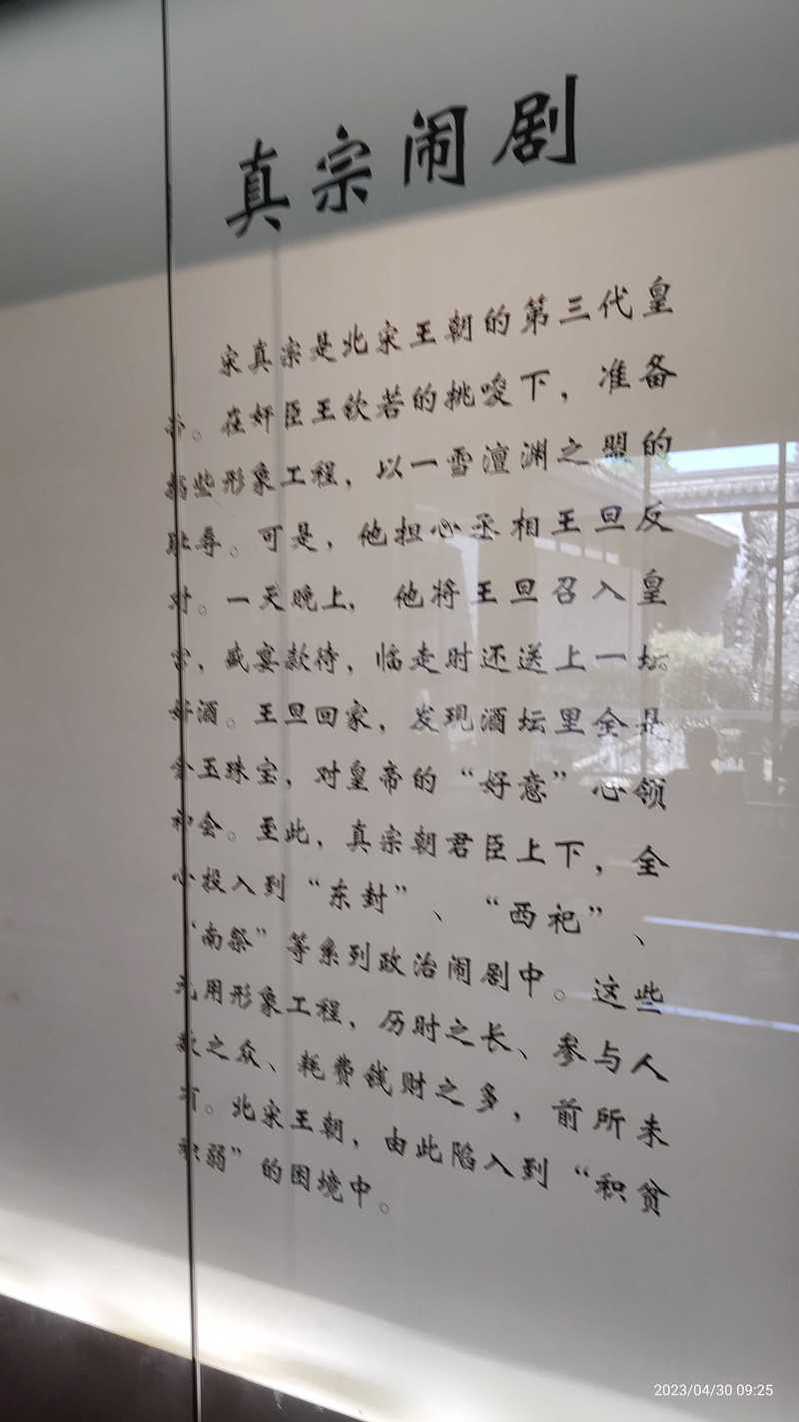 真宗闹剧
宋真宗是北宋王朝的第三代皇
帝。在奸臣王钦若的挑唆下，准备
搞些形象工程，以一雪澶渊之盟的
耻辱。可是，他担心丞相王旦反
对。一天晚上，他将王旦召入皇
宫，盛宴款待，临走时还送上一坛
好酒。王旦回家，发现酒坛里全是
金玉珠宝，对皇帝的“好意”心领
神会。至此，真宗朝君臣上下，全
心投入到“东封”、“西祀”、
“南祭”等系列政治闹剧中。这些
无用形象工程，历时之长、参与人
数之众、耗费钱财之多，前所未
有。北宋王朝，由此陷入到“积贫
积弱”的困境中。
2023/04/30 09:25